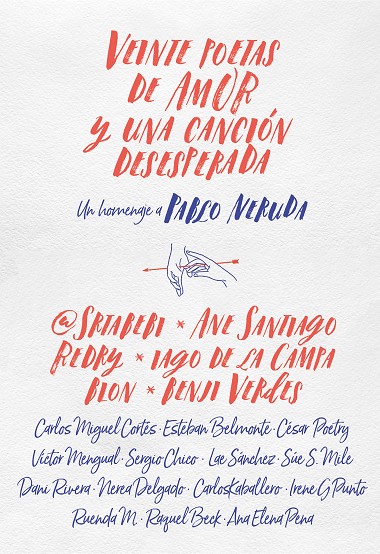 VEINTE POETAS
DE AMOR
Y UNA CANCIÓN
DESESPERADA
Un homenaje a PABLO NERUDA
@SRTABEBI * ANE SANTIAGO
REDRY * IAGO DE LA CAMPA
BLON * BENJI VERDES
Carlos Miguel Cortés · Esteban Belmonte · César Poetry
Víctor Mengual · Sergio Chico · Lae Sánchez · Súe S. Mile
Dani Rivera · Nerea Delgado · CarlosKaballero · Irene G Punto
Ruenda M. · Raquel Beck · Ana Elena Pena